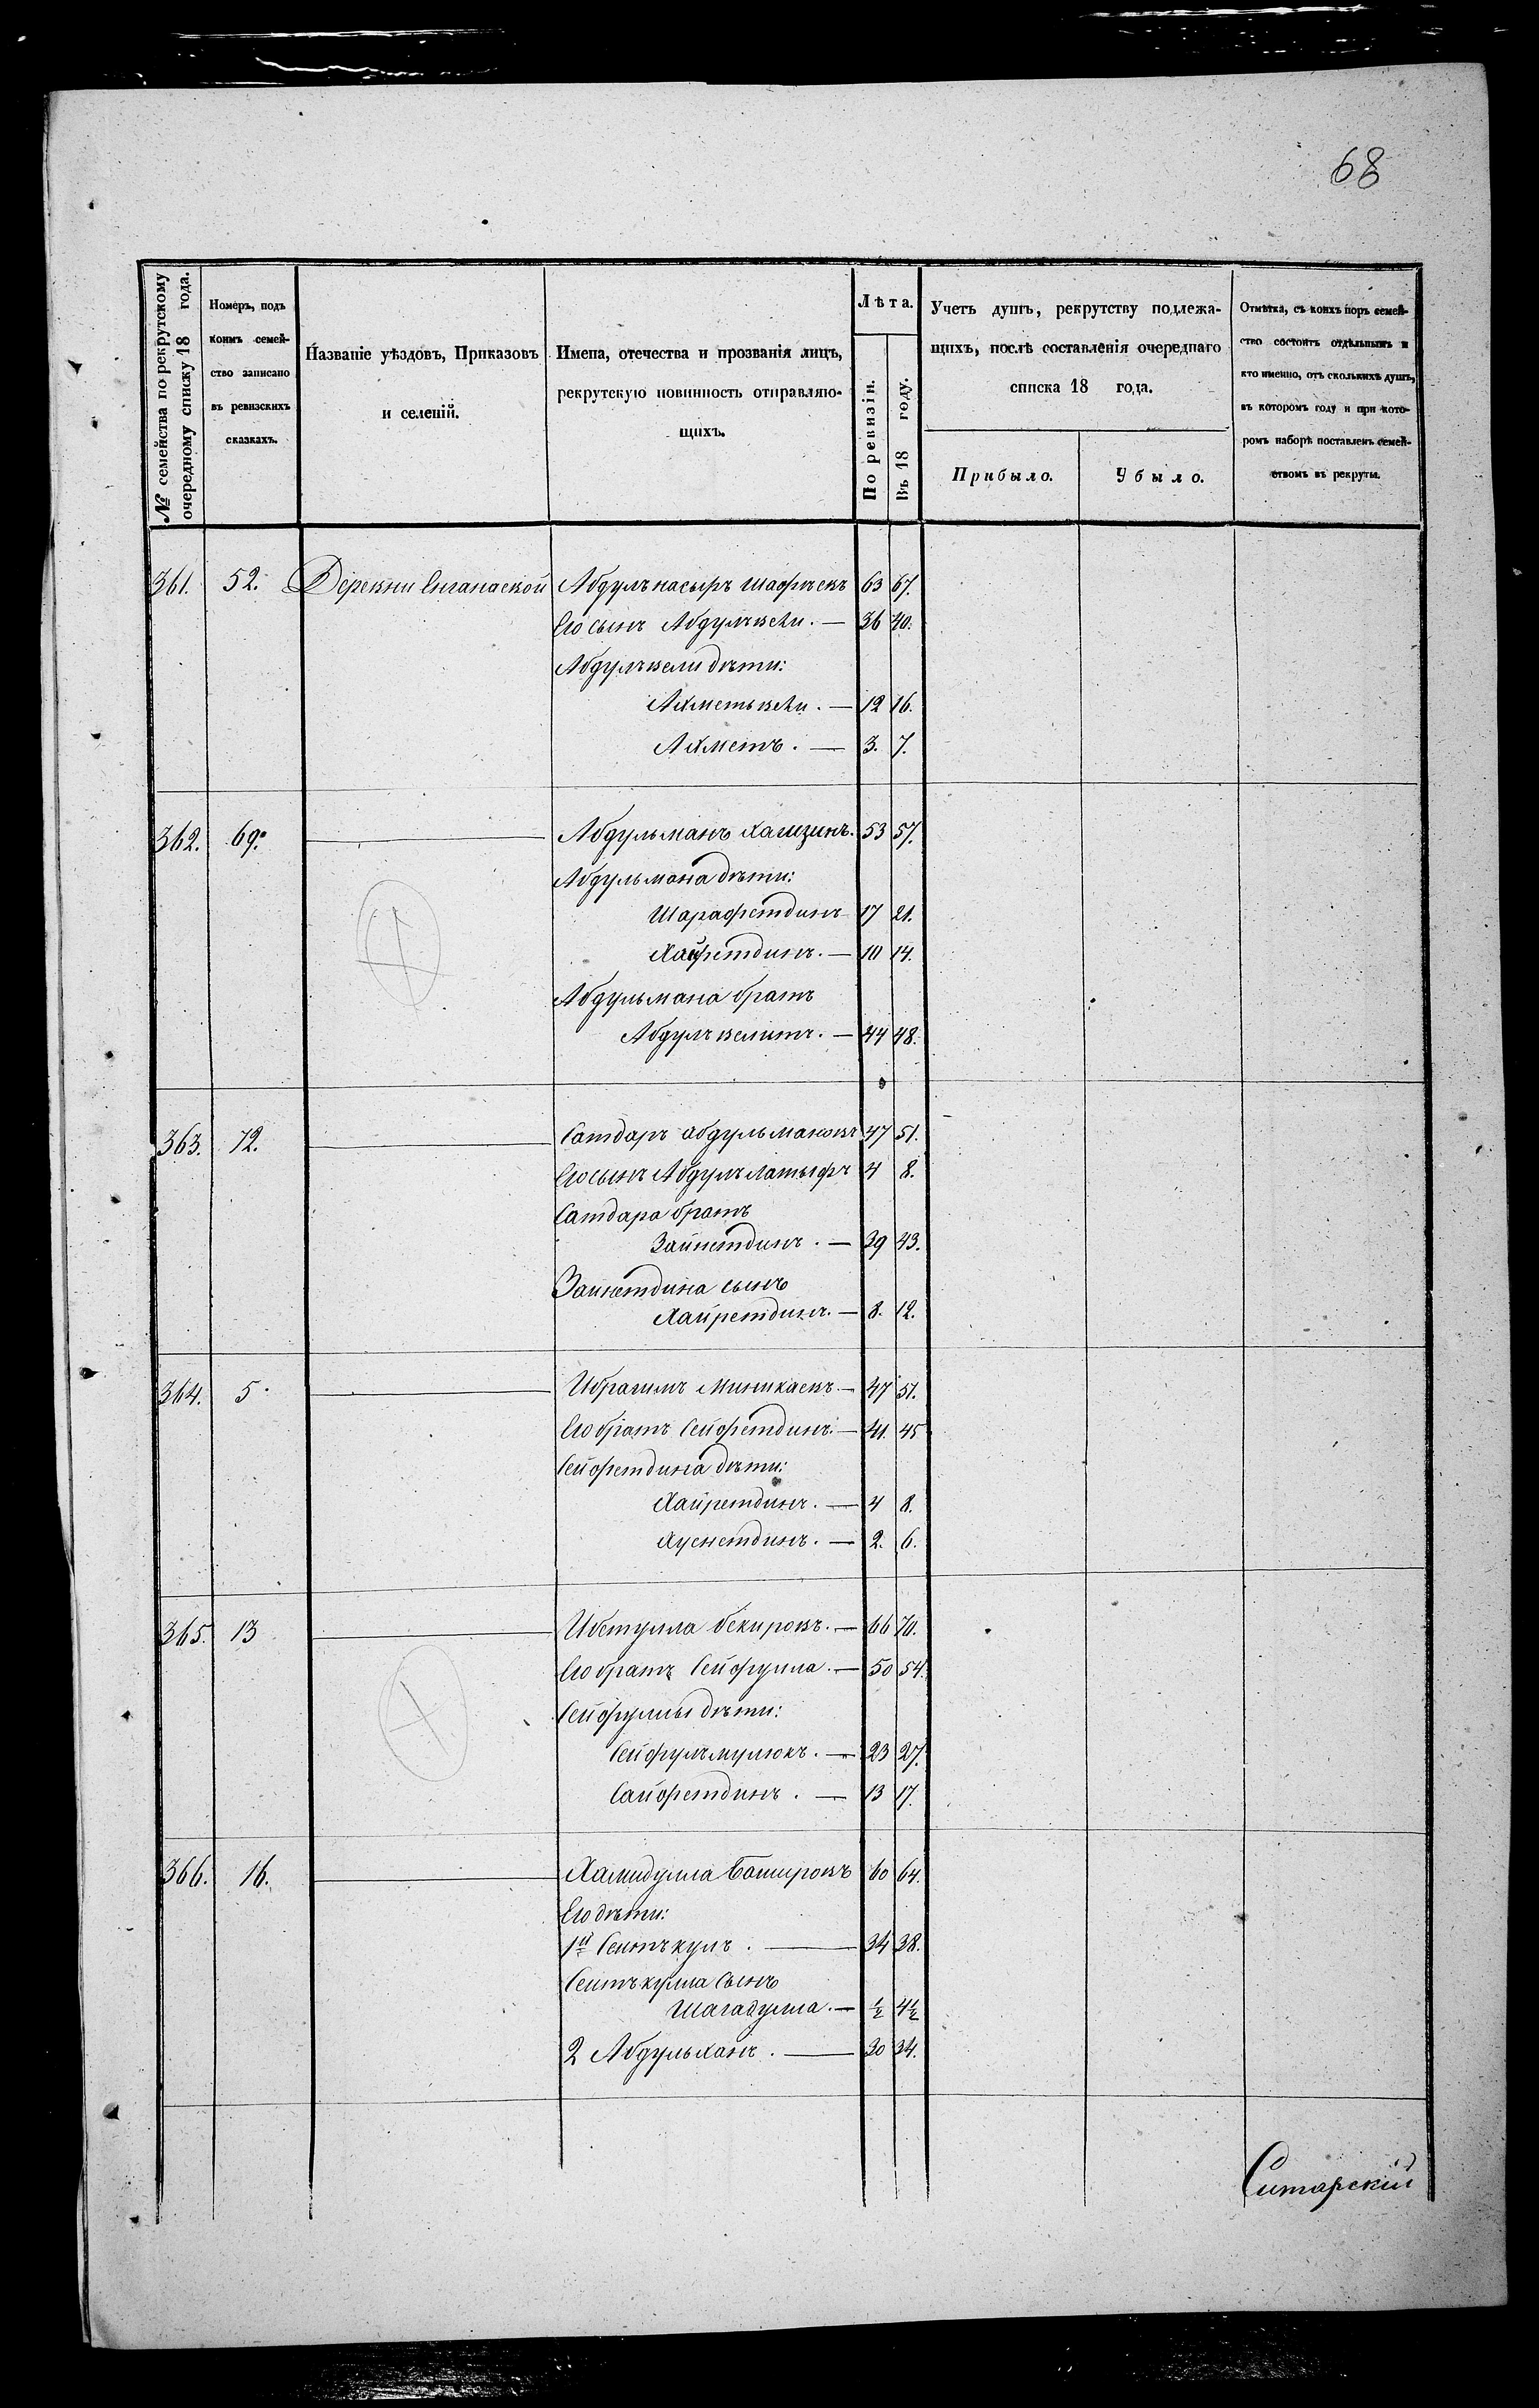 68
№ семейства по рекрутскому
очередному списку 18 года.
Номеръ, подъ
коимъ семей-
ство записано
въ ревизскихъ
сказкахъ.
Названіе уѣздовъ, Приказовъ
и селеній.
Имена, отечества и прозванія лицъ,
рекрутскую повинность отправляю-
щихъ.
Лѣта.
По ревизіи.
Въ 18 году.
Учетъ душъ, рекрутству подлежа-
щихъ, послѣ составленія очереднаго
списка 18 года.
Прибыло.
Убыло.
Отмѣтка, съ коихъ поръ семей-
ство состоитъ отдѣльнымъ и
кто именно, отъ сколькихъ душъ,
въ которомъ году и при кото-
ромъ наборѣ поставленъ семей-
ствомъ въ рекруты.
361. 52. Деревни Абдулънасыръ 63 67.
Его сынъ Абдулвели. — 36 40.
Абдулвели дѣти:
Ахметьвели. — 12 16.
Ахметъ. — 3. 7.
362. 69. Абдульманъ Хамзинъ. 53 57.
Абдульмана дѣти:
Шарафетдинъ 17 21.
Хайретдинъ. — 10 14.
Абдульмана братъ
Абдулвелитъ. — 44 48.
363. 72. Сатдаръ Абдульмановъ 47 51.
Его сынъ Абдулълатыфъ 4 8.
Сатдара братъ
Зайнетдинъ. — 39 43.
Заинетдина сынъ
Хайретдинъ. — 8. 12.
364. 5. Ибрагимъ Миникаевъ. — 47 51.
Его братъ Сейфетдинъ. — 41. 45
Сейфетдина дѣти:
Хайретдинъ. — 4 8.
Хуснетдинъ. — 2. 6.
365. 13 Ибетулла Бекировъ. — 66 70.
Его братъ Сейфулла. — 50 54.
Сейфуллы дѣти:
Сейфулъмулюкъ. — 23 27.
Сайфетдинъ. — 13 17.
366. 16. Хамидулла Башировъ 60 64.
Его дѣти:
1й Сеитъкулъ. — 34 38.
Сеитъкулла сынъ
Шагадулла. — ½ 4½
2 Абдульханъ. — 30 34.